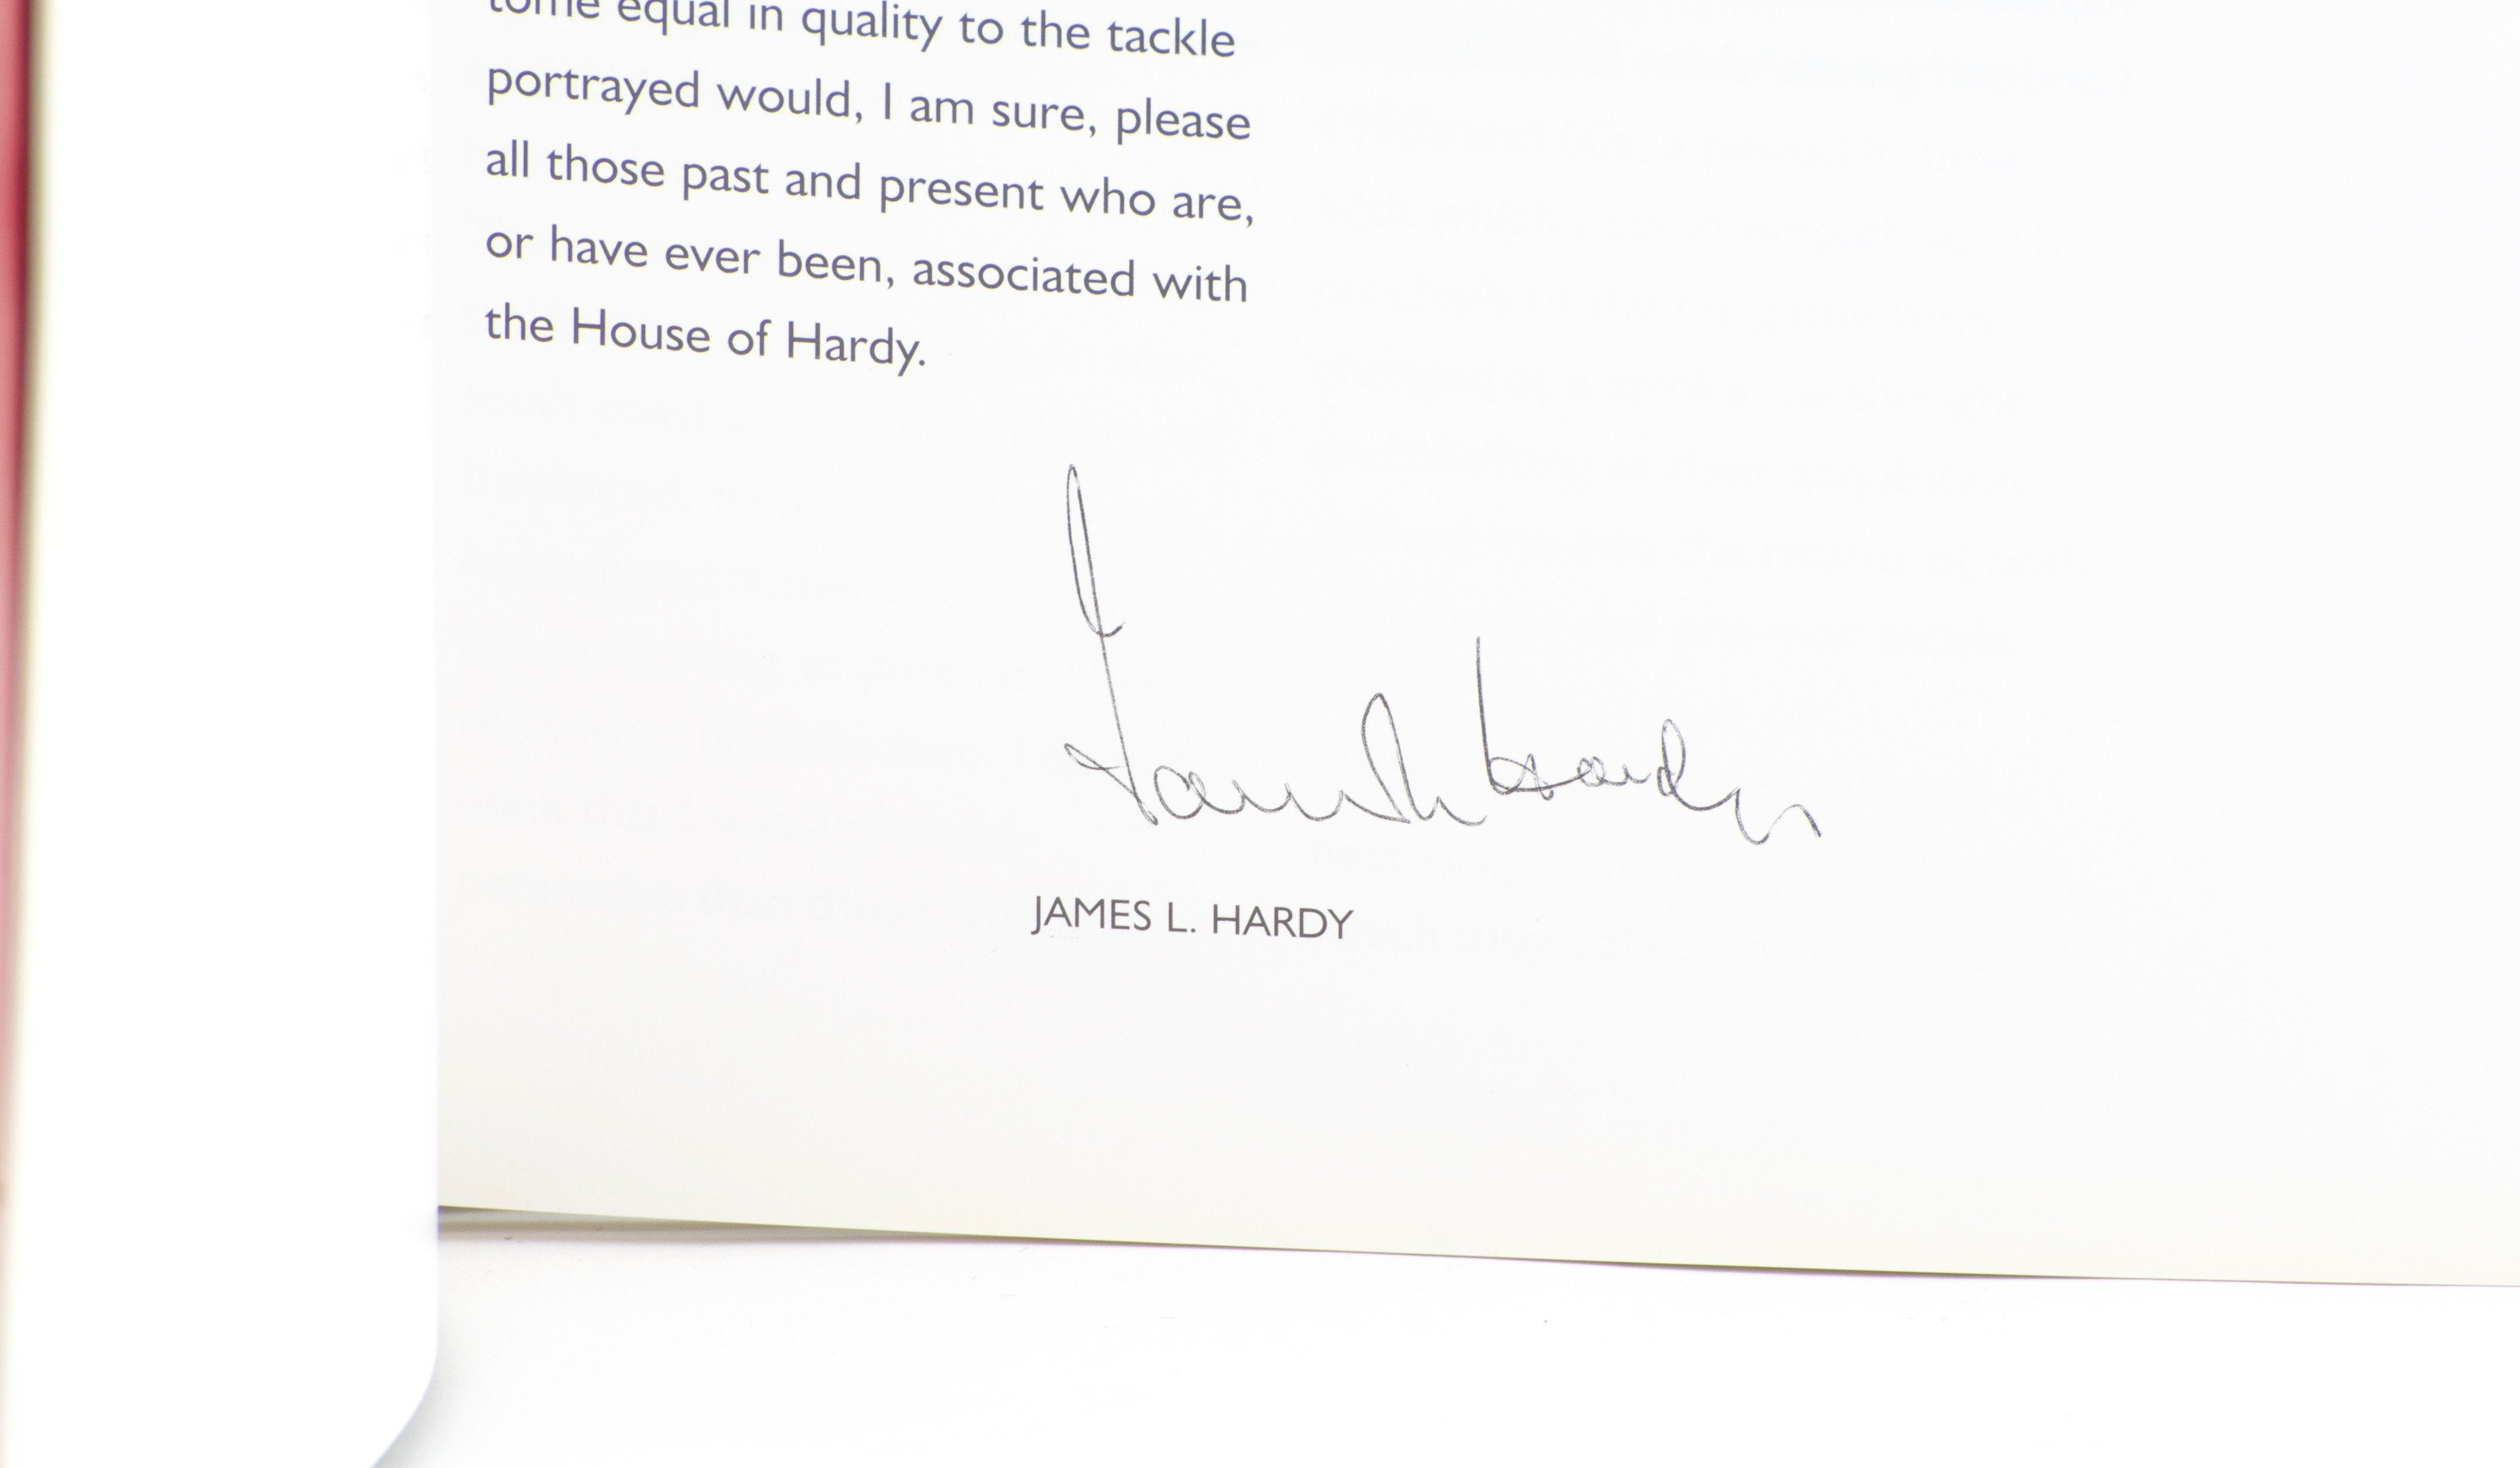 tome equal in quality to the tackle
portrayed would, I am sure, please
all those past and present who are,
or have ever been, associated with
the House of Hardy.
James L. Hardy
JAMES L. HARDY